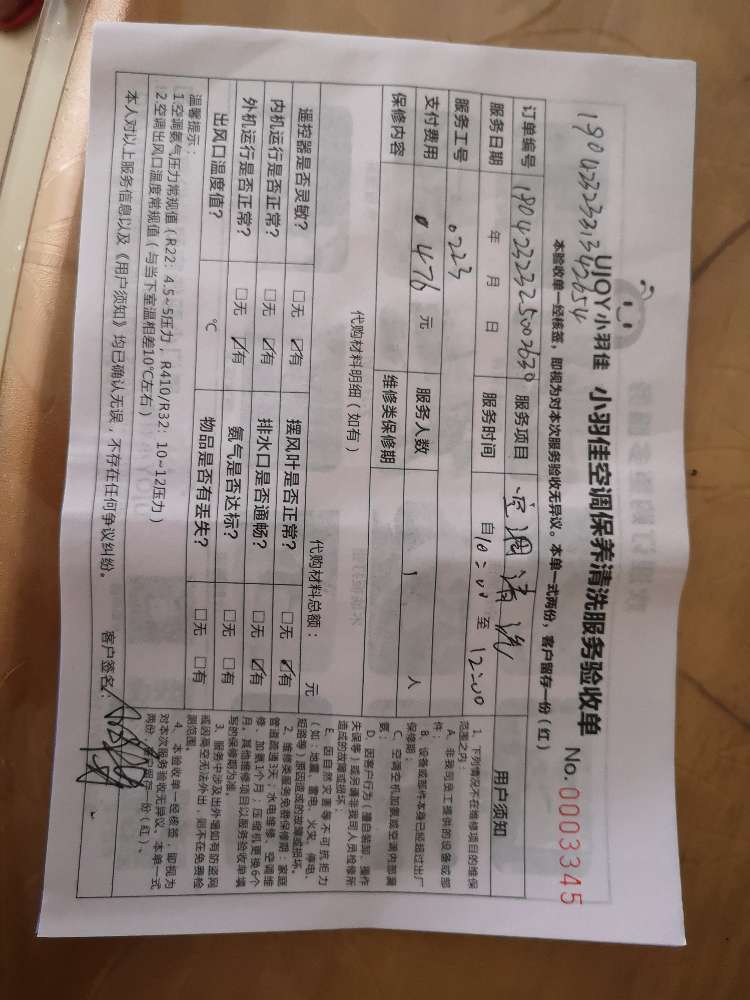 UJOY小羽佳 小羽佳空调保养清洗服务验收单 No.0003345
19042323313342654
本验收单一经核签，即视为对本次服务验收无异议。本单一式两份，客户留存一份（红）
订单编号 1904232325002630 服务项目 空调清洗
服务日期 年 月 日 服务时间 自10:00 至 12:00
服务工号 0223
支付费用 0476 元 服务人数 1 人
保修内容 维修类保修期
代购材料明细（如有） 代购材料总额： 元
遥控器是否灵敏？ □无 ☑有 摆风叶是否正常？ □无 ☑有
内机运行是否正常？ □无 ☑有 排水口是否通畅？ □无 ☑有
外机运行是否正常？ □无 ☑有 氨气是否达标？ □无 □有
出风口温度值？ ℃ 物品是否有丢失？ □无 □有
温馨提示：
1.空调氨气压力常规值（R22：4.5~5压力，R410/R32：10~12压力）
2.空调出风口温度常规值（与当下室温相差10℃左右）
本人对以上服务信息以及《用户须知》均已确认无误，不存在任何争议纠纷。 客户签名：
用户须知
1、下列情况不在维修项目的维保
范围之内：
A、非我司员工提供的设备或部
件；
B、设备或部件本身已经超过出厂
保修期；
C、空调空机加氨或空调内部漏
氨；
D、因客户行为（擅自装卸、操作
失误等）或另请非我司人员检修所
造成的故障或损坏；
E、因自然灾害等不可抗拒力
（如：地震、雷电、火灾、停电、
短路等）原因造成的故障或损坏。
2、维修类服务免费保修期：家庭
管道疏通3天；水电维修、空调维
修、加氨1个月；压缩机更换6个
月。其他维修项目以服务验收单填
写的保修期为准。
3、服务中涉及出外墙如有防盗网
或因高空无法外出，则不在免费检
测范围。
4、本验收单一经核签，即视为
对本次服务验收无异议。本单一式
两份，客户留存一份（红）。